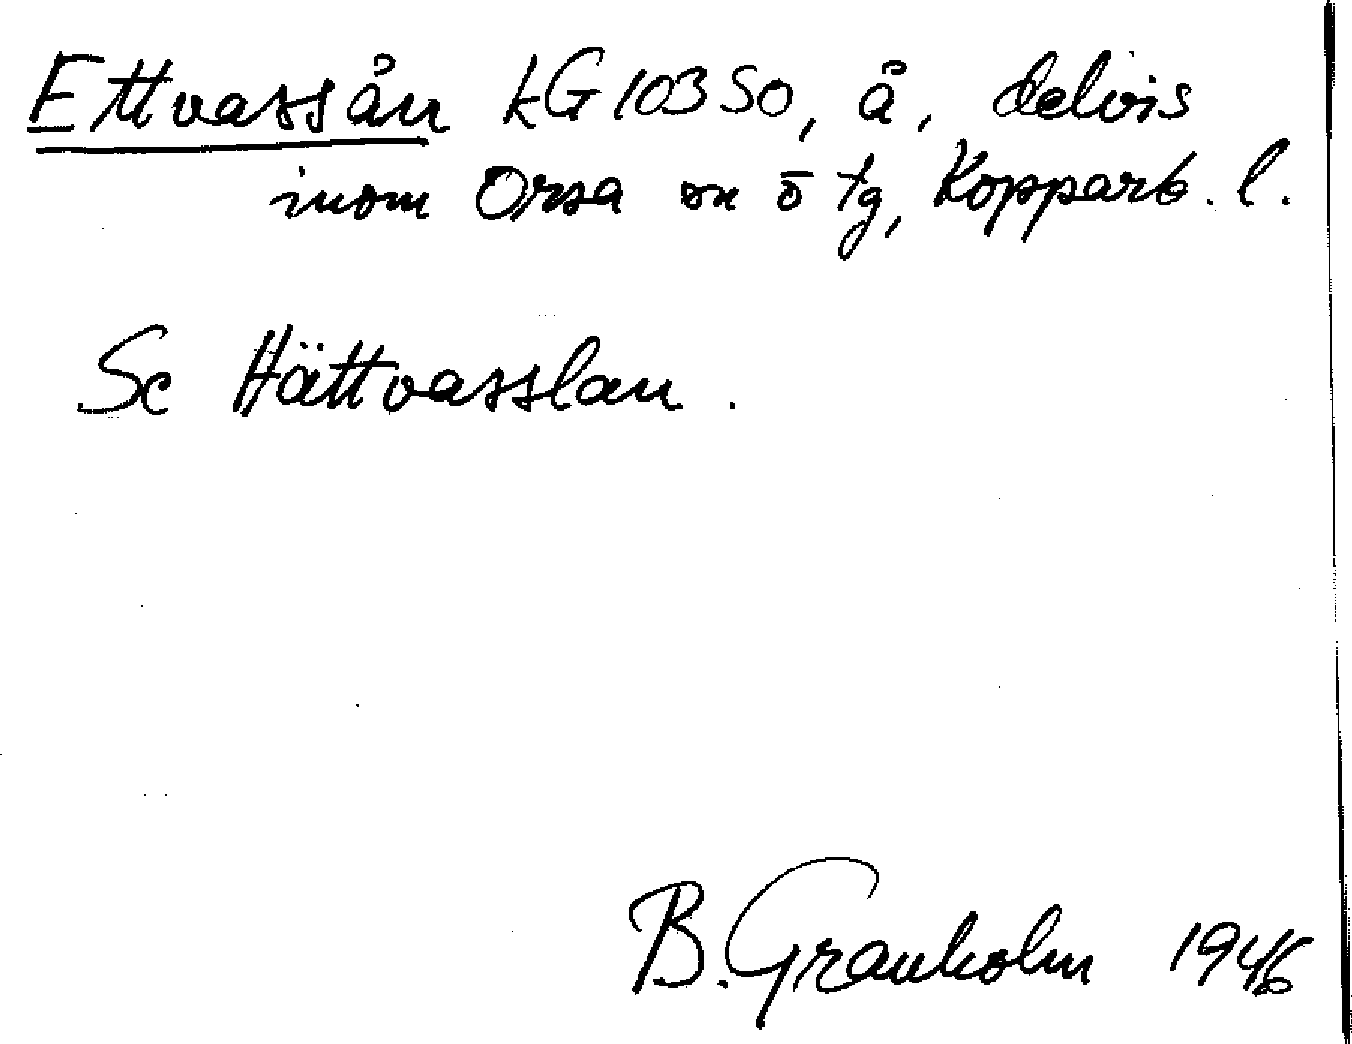 Ettvassån kG 103 SO, å, delvis
inom Orsa sn ö tg, Kopparb. l.
Se Hättvasslan.
B. Granholm 1946